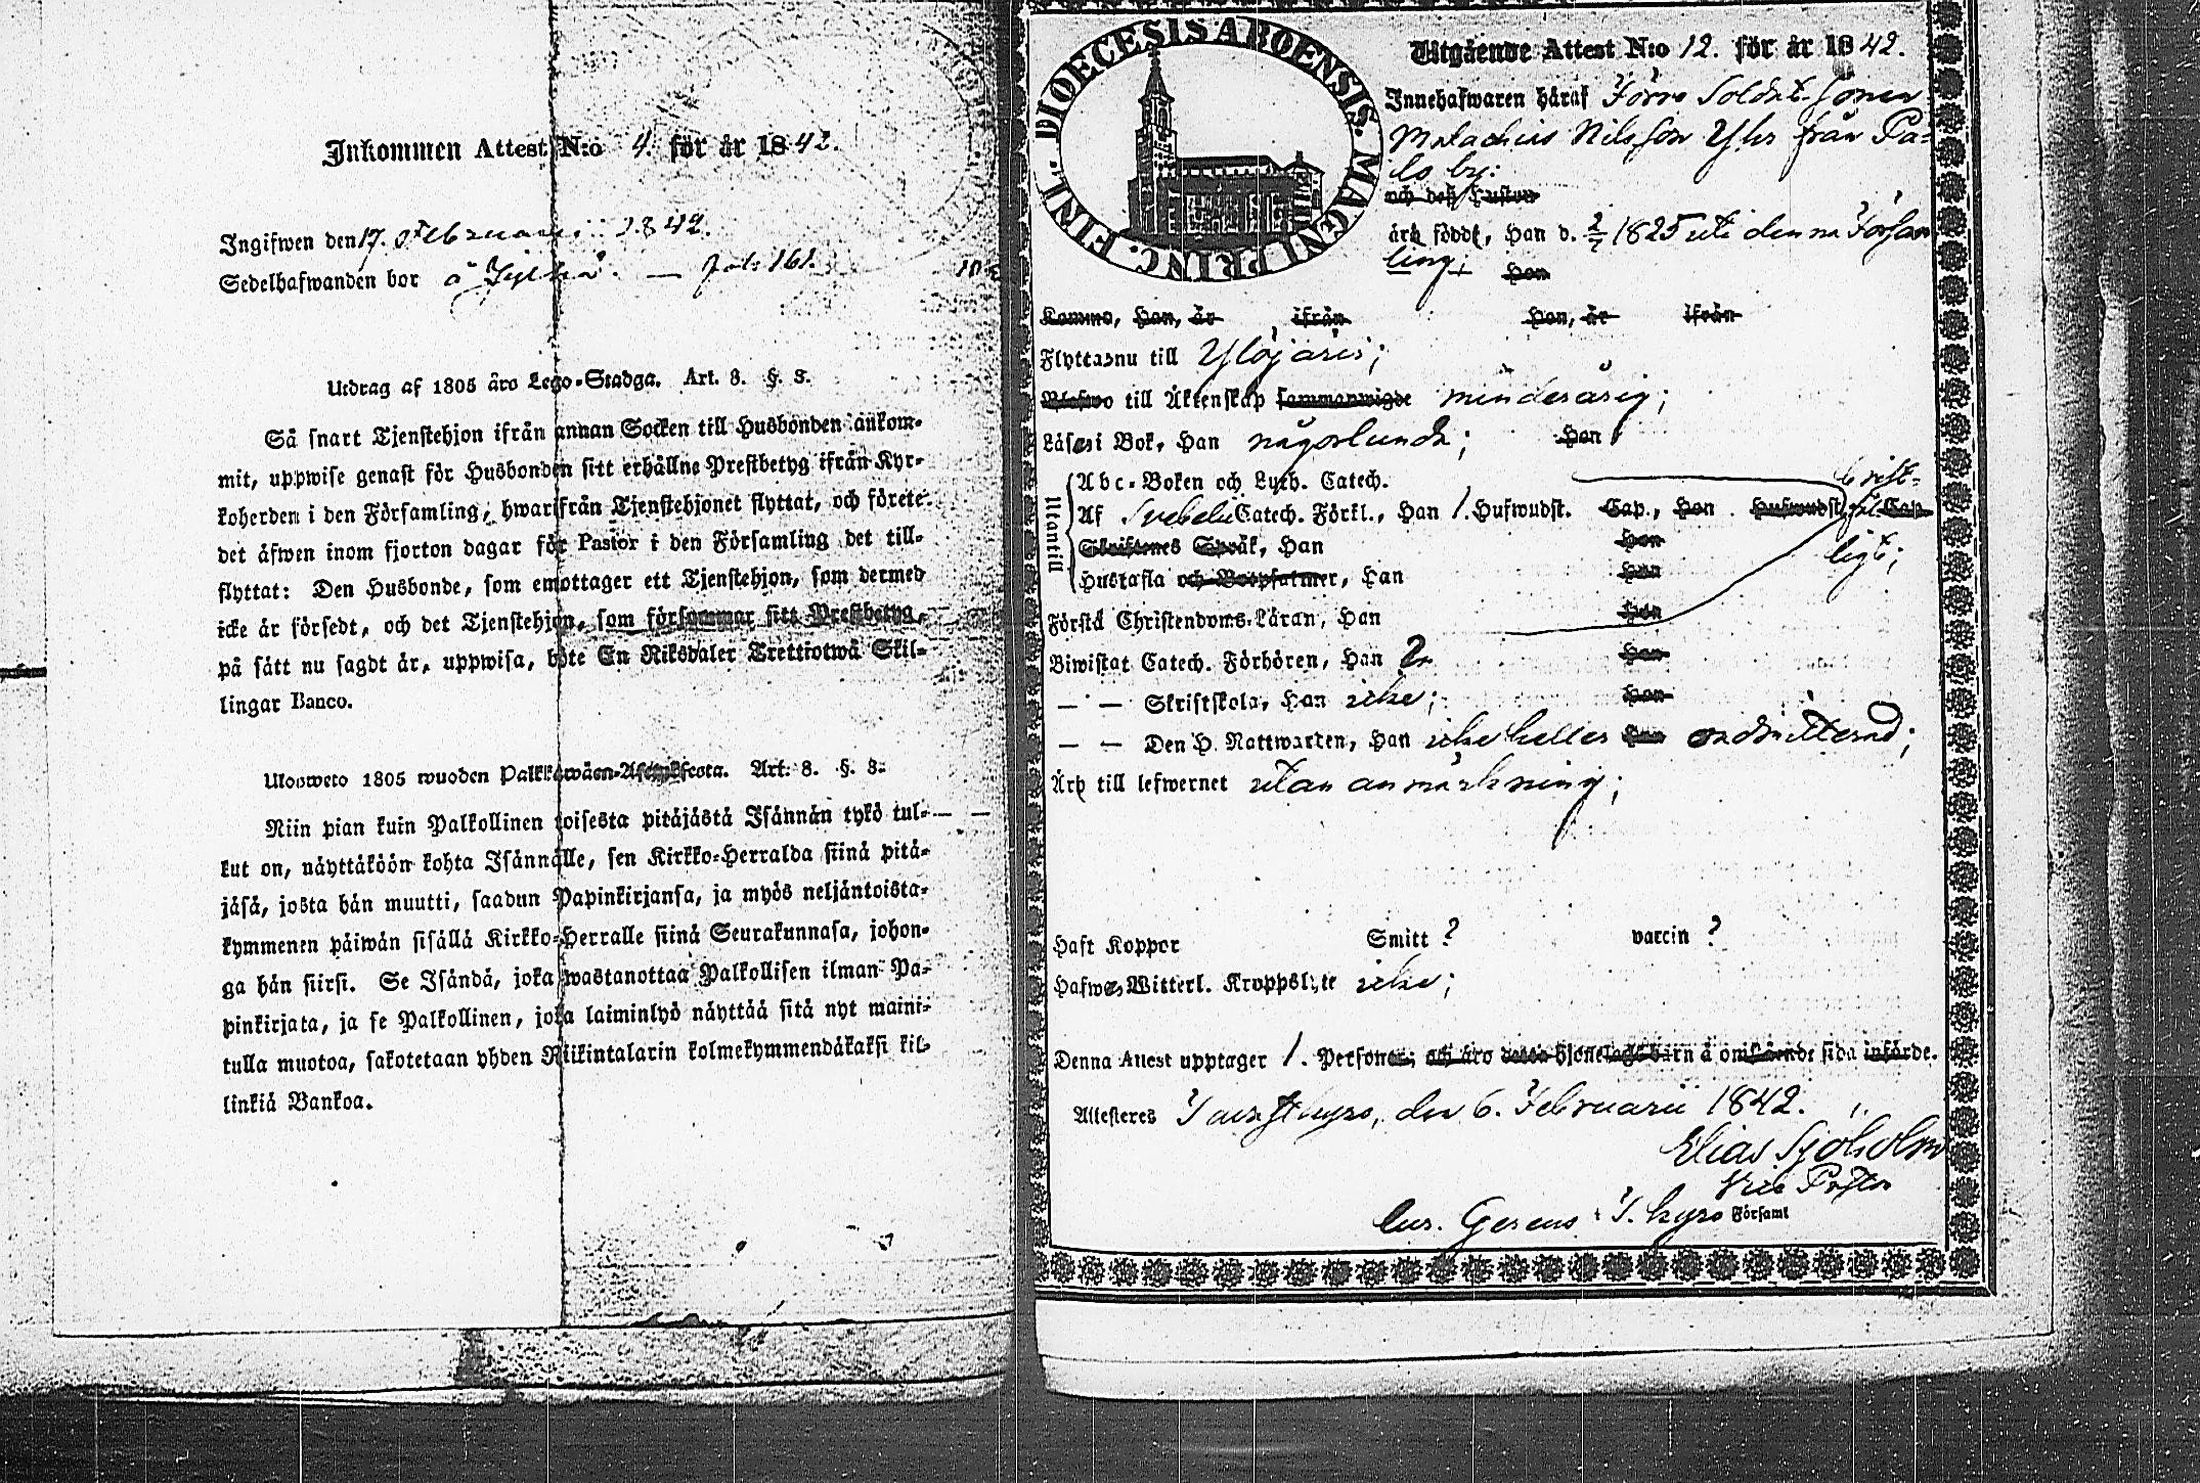 Inkommen Attest N:o 4. för år 1842.
Ingifwen den 17. Februarii 1842.
Sedelhafwanden bor å
Utdrag af 1805 års Lego-Stadga. Art. 8. §. 8.
Så snart Tjenstehjon ifrån annan Socken till Husbonden ankom-
mit, uppwise genast för Husbonden sitt erhållne Prestbetyg ifrån Kyr-
koherden i den Församling, hwarifrån Tjenstehjonet flyttat, och förete
det äfwen inom fjorton dagar för Pastor i den Församling det till-
flyttat: Den Husbonde, som emottager ett Tjenstehjon, som dermed
icke är försedt, och det Tjenstehjon, som försummar sitt Prestbetyg,
på sätt nu sagdt är, uppwisa, böte En Riksdaler Trettiotwå Skil-
lingar Banco.
Ulosweto 1805 wuoden Palkkawäen-Asetuksesta. Art. 8. §. 8.
Niin pian kuin Palkollinen toisesta pitäjästä Isännän tykö tul-
kut on, näyttäköön kohta Isännälle, sen Kirkko-Herralda siinä pitä-
jäsä, josta hän muutti, saadun Papinkirjansa, ja myös neljäntoista-
kymmenen päiwän sisällä Kirkko-Herralle siinä Seurakunnasa, johon-
ga hän siirsi. Se Isändä, joka wastanottaa Palkollisen ilman Pa-
pinkirjata, ja se Palkollinen, joka laiminlyö näyttää sitä nyt maini-
tulla muotoa, sakotetaan yhden Riikintalarin kolmekymmendäkaksi kil-
linkiä Bankoa.
DIOECESIS ABOENSIS. MAGNI PRINC. FINL.
Utgående Attest N:o 12. för år 1842.
Innehafwaren häraf Förre Soldat Sonen
Malachias Nilsson Yhr från Pa-
lo by.
och des Hustru
är född, Han d. 2/7 1825 uti denna Försam
ling; Hon
Komne, Han, är ifrån Hon, är ifrån
Flyttas nu till Ylöjärvi;
Blefwo till Äktenskap sammanwigde minderårig;
Läser i Bok, Han någorlunda; Hon
Utantill
Abc-Boken och Luth. Catech.
Af Svebelii Catech. Förkl., Han 1. Hufwudst. Cap., Hon Hufwudst. Cap.
brist-
fäl
ligt;
Skriftenes Språk, Han Hon
Hustafla och Botpsalmer, Han Hon
Förstå Christendoms-Läran, Han Hon
Biwistat Catech. Förhören, Han Hon
— — Skriftskola, Han icke; Hon
— — Den H. Nattwarden, Han icke heller Hon admitterad;
Är till lefwernet utan anmärkning;
Haft Koppor Smitt ? vaccin ?
Hafwa Witterl. Kroppslyte icke;
Denna Attest upptager 1. Personer, och äro dessa hjonelags barn å omstående sida införde.
Attesteres Tavastkyro, den 6. Februarii 1842.
Elias Sjöholm
Vice Pastor
Cur. Gerens i T. kyro Församl